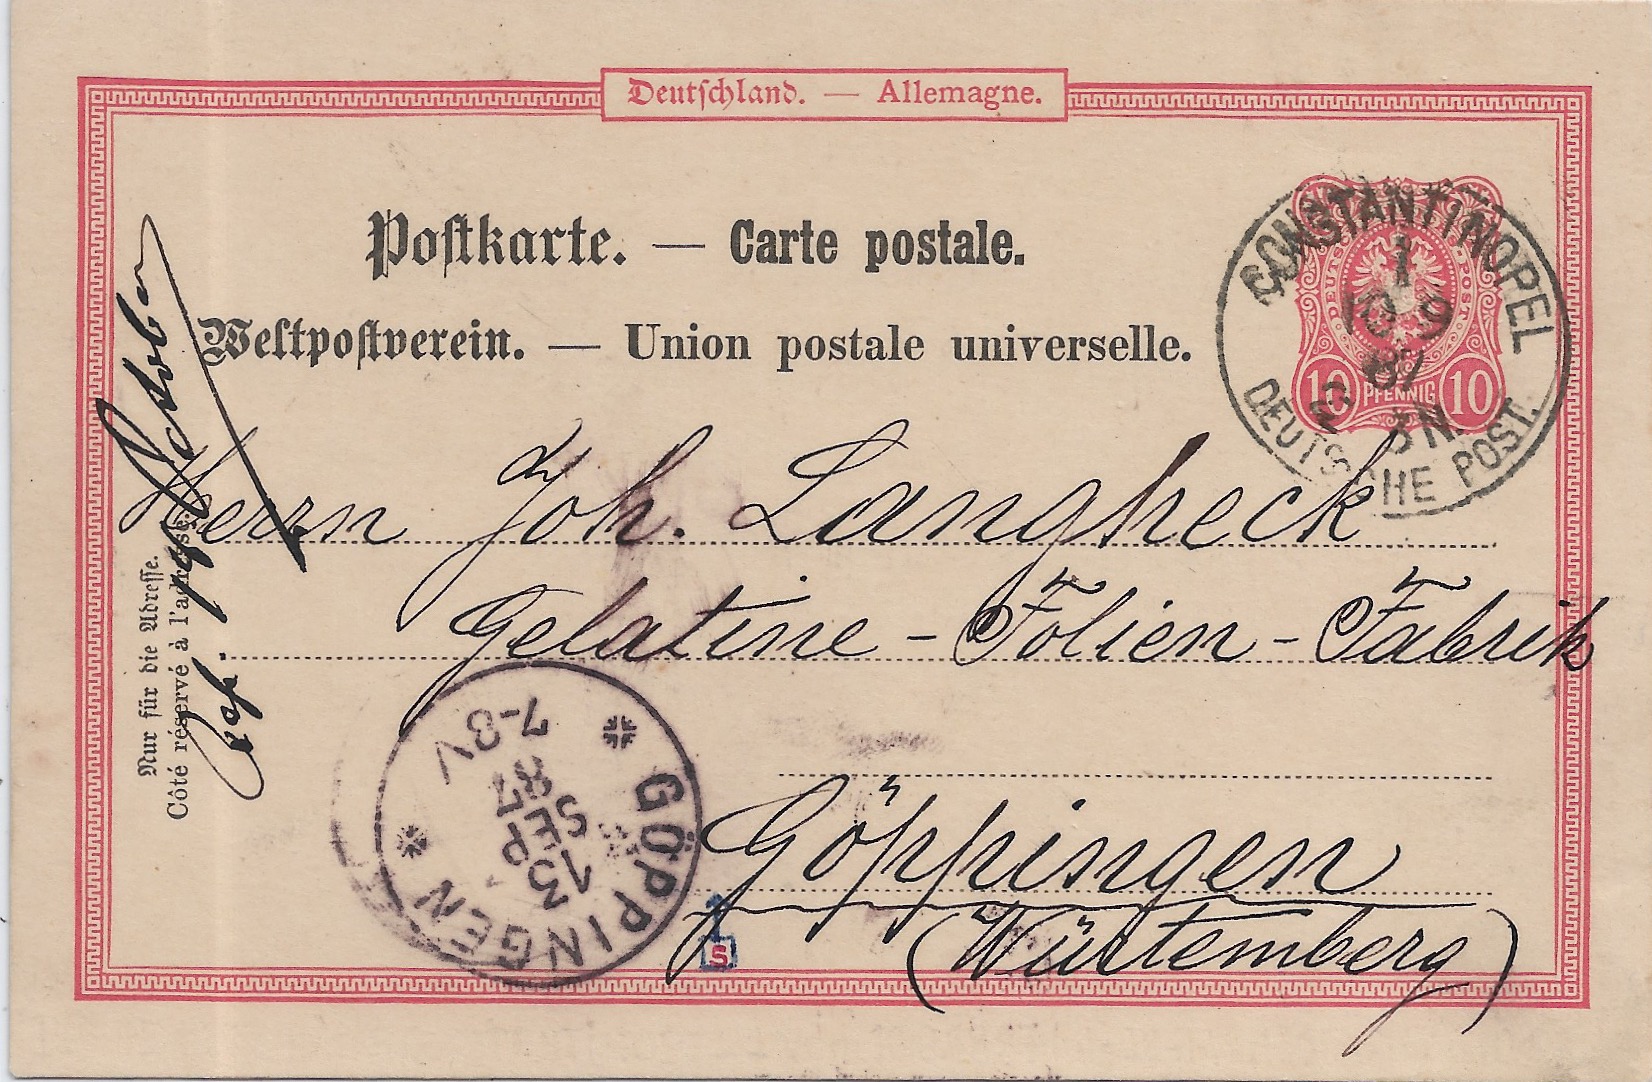 Deutschland. — Allemagne.
Postkarte. — Carte postale.
Weltpostverein. — Union postale universelle.
DEUTSCHE POST
10 PFENNIG 10
CONSTANTINOPEL
1
9
87
N.
DEUTSCHE POST.
Herrn Joh. Langheck
Gelatine - Folien - Fabrik
Göppingen
(Württemberg)
Nur für die Adresse.
Côté réservé à l'adresse.
GÖPPINGEN
13
SEP
87
7-8V
S